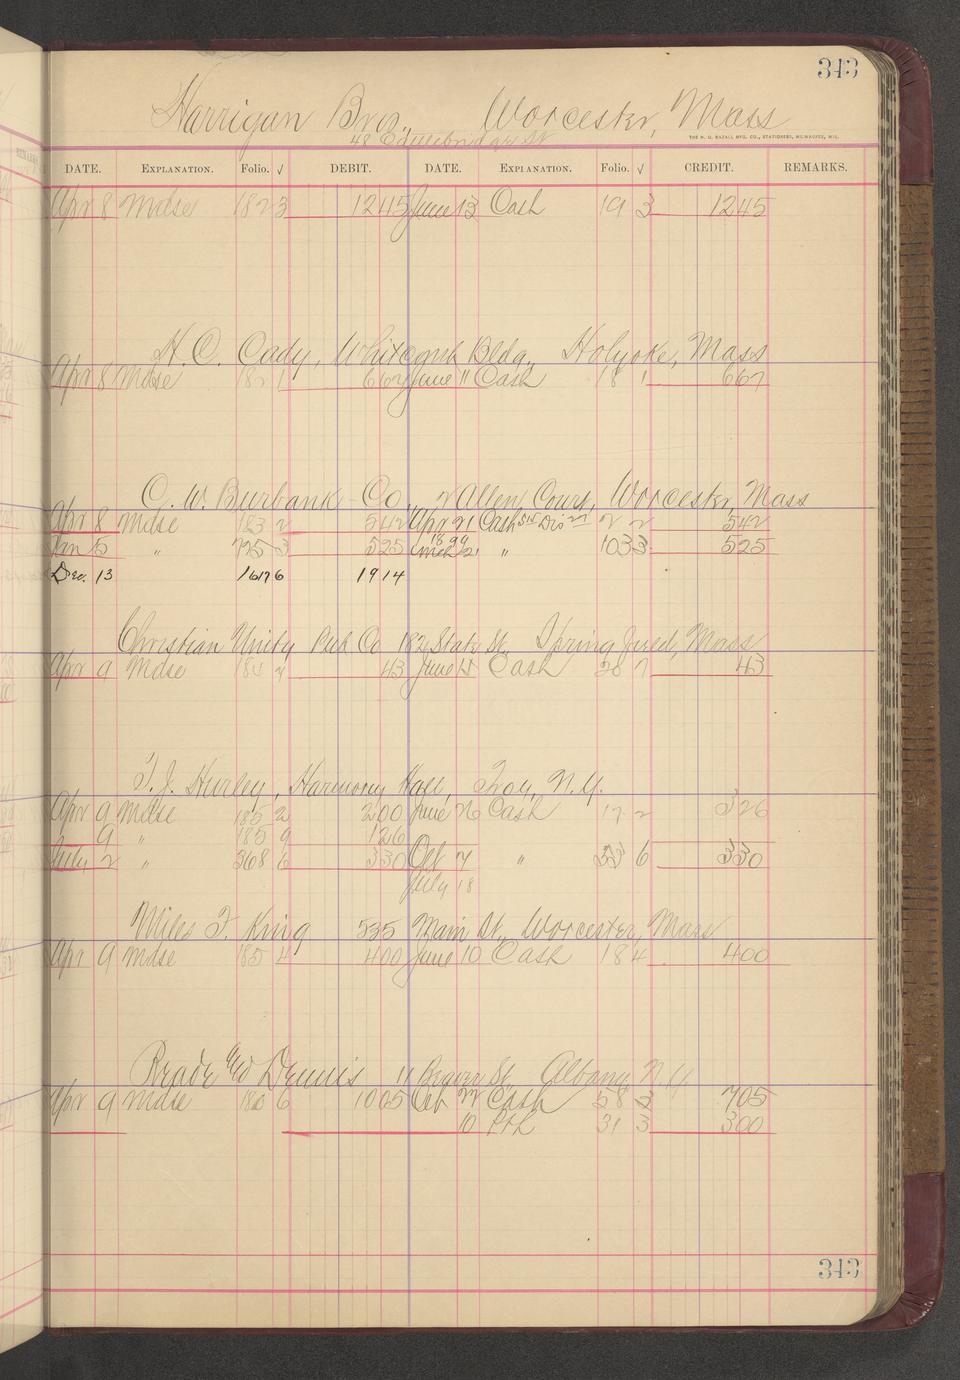 343
Harrigan Bros., Worcester, Mass
48
THE H. G. RAZALL MFG. CO., STATIONERS, MILWAUKEE, WIS.
DATE. EXPLANATION. Folio. √ DEBIT. DATE. EXPLANATION. Folio. √ CREDIT. REMARKS.
Apr 8 Mdse 182 3 1245 June 13 Cash 19 3 1245
H. C. Cady, Whitcomb Bldg., Holyoke, Mass
Apr 8 Mdse 182 1 667 June 11 Cash 18 1 667
C. W. Burbank Co., 2 Allen Court, Worcester, Mass
Apr 8 Mdse 183 2 542 Apr 21 Cash 515 Dis 27 2 2 542
1894
Jan 5 " 725 3 525 Mch 21 " 103 3 525
Dec. 13 1617 6 1914
Christian Unity Pub Co 182 State St. Springfield, Mass
Apr 9 Mdse 184 7 43 June 15 Cash 20 7 43
T. J. Hurley, Harmony Hall, Troy, N.Y.
Apr 9 Mdse 185 2 200 June 26 Cash 17 2 326
9 " 185 9 126
July 2 " 368 6 330 Oct 7 " 53 6 330
July 18
Miles F. King 535 Main St., Worcester, Mass
Apr 9 Mdse 185 4 400 June 10 Cash 18 4 400
Reade and Dennis 11 Beaver St., Albany N.Y.
Apr 9 Mdse 186 6 1005 Oct 22 Cash 58 3 705
10 31 3 300
343